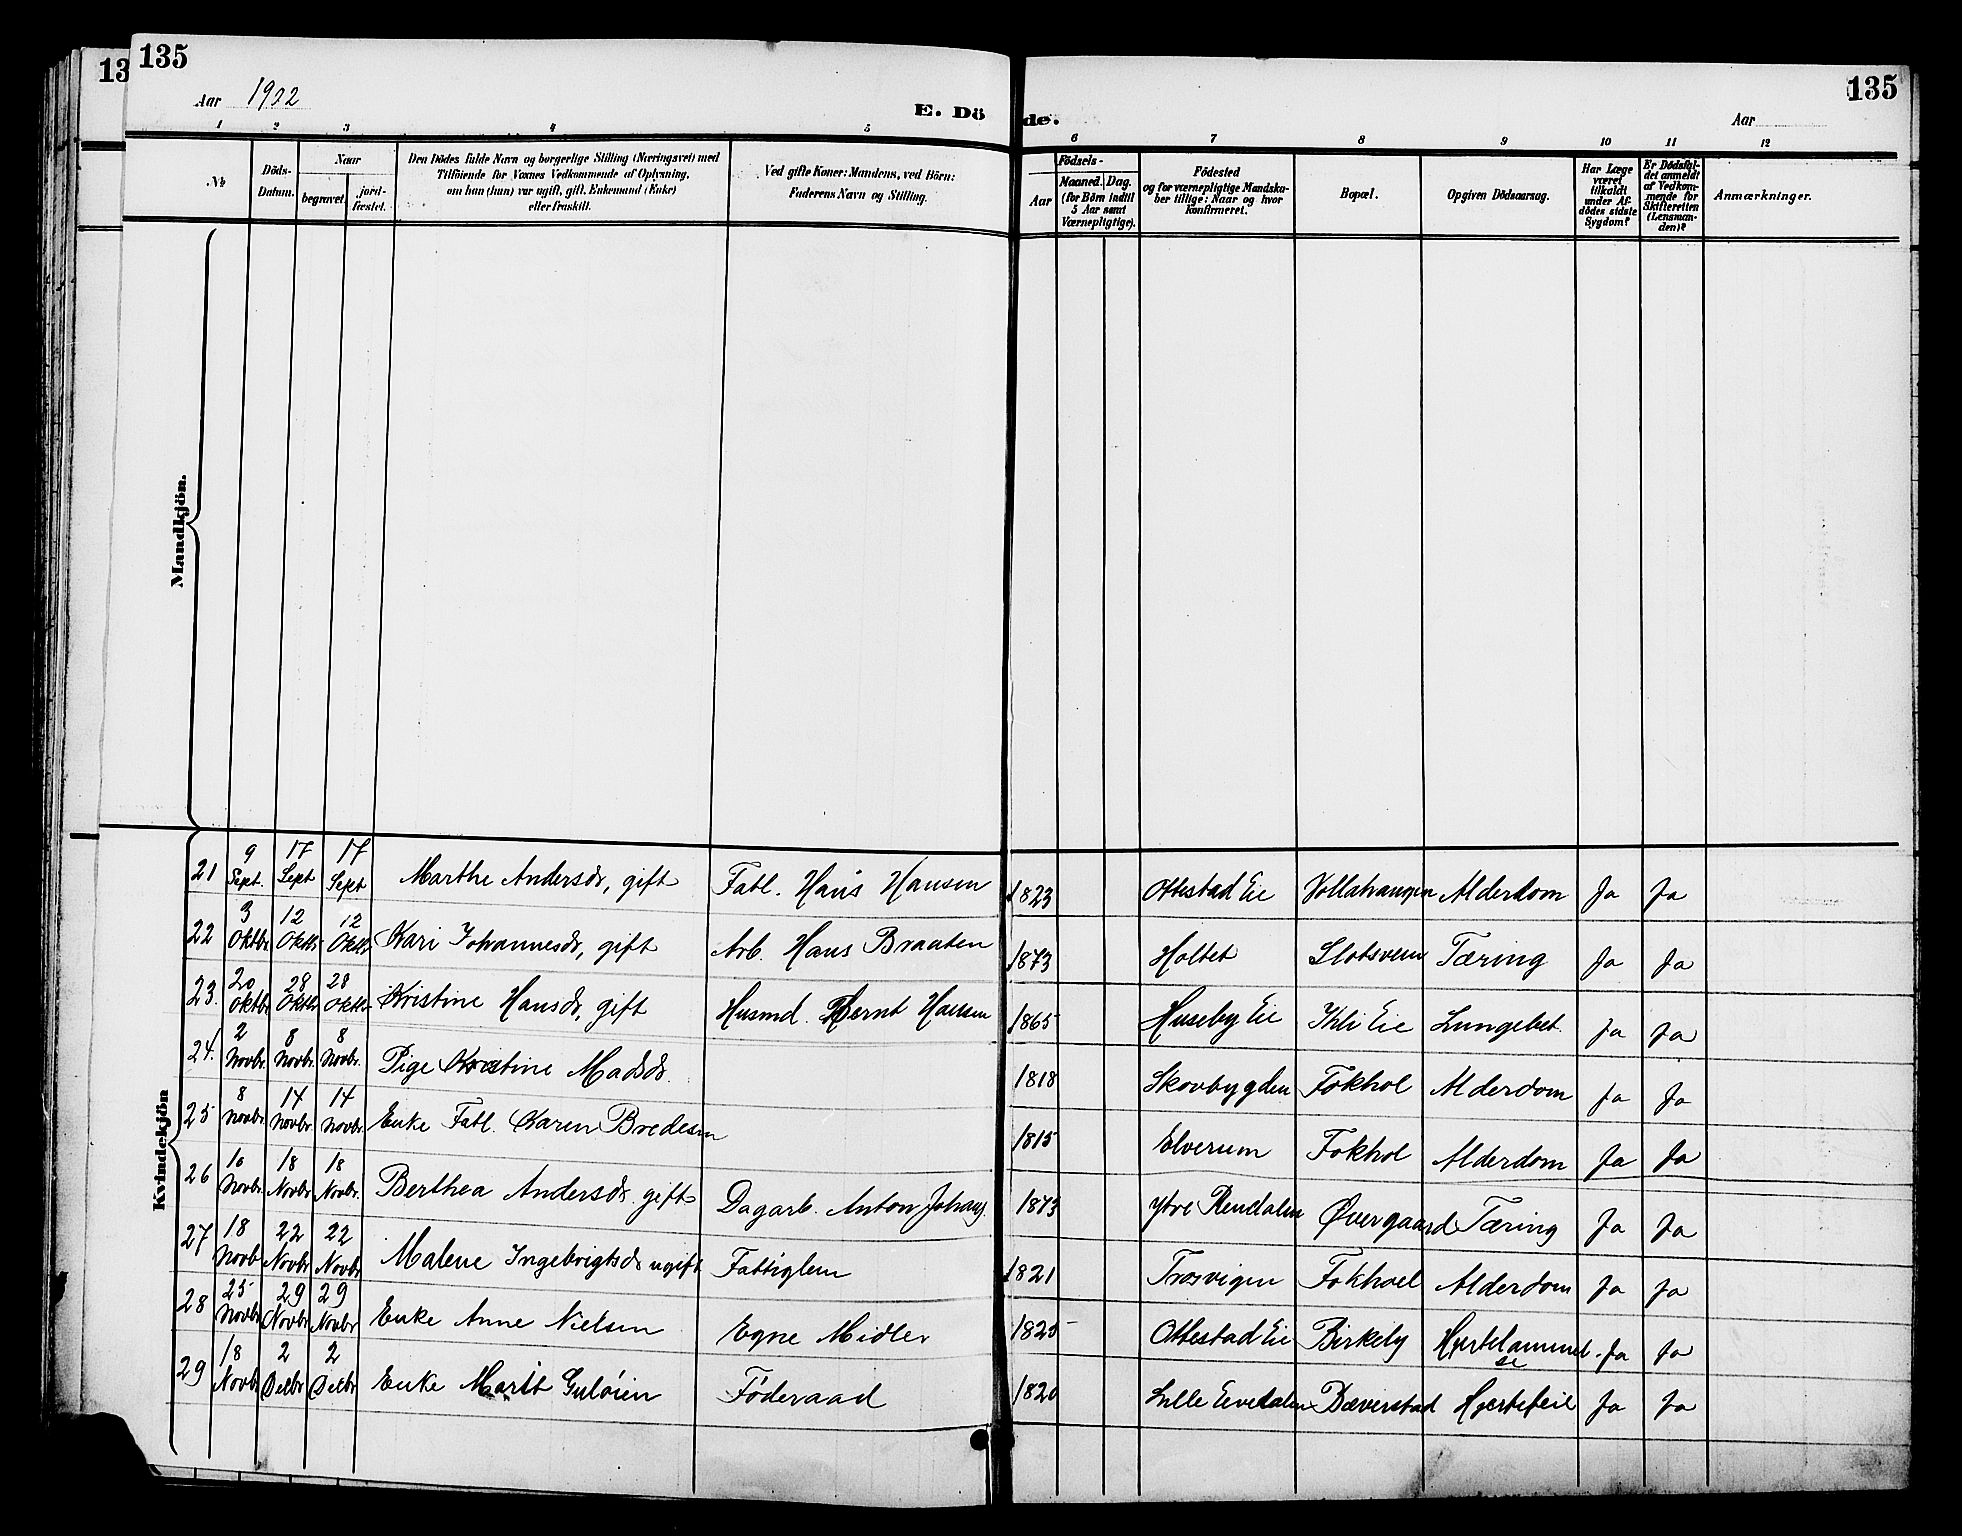 135
13
135
Aar 1902
E. Dö
de.
Aar
1 2 3 4 5 6 7 8 9 10 11 12
№
Döds-Datum.
Naar
begravet.
jord-fæstet.
Den Dödes fulde Navn og borgerlige Stilling (Næringsvei) med
Tilföiende for Voxnes Vedkommende af Oplysning,
om han (hun) var ugift, gift, Enkemand (Enke)
eller fraskilt.
Ved gifte Koner: Mandens, ved Börn:
Faderens Navn og Stilling.
Födsels-
Aar
Maaned. Dag.
(for Börn indtil
5 Aar samt
Værnepligtige).
Födested
og for værnepligtige Mandska-
ber tillige: Naar og hvor
Konfirmeret.
Bopæl.
Opgiven Dödsaarsag.
Har Læge
været
tilkaldt
under Af-
dödes sidste
Sygdom?
Er Dödsfal-
det anmeldt
af Vedkom-
mende for
Skifteretten
(Lensman-
den)?
Anmærkninger.
Mandkjön.
Kvindekjön
21 9 Sept. 17 Sept 17 Sept Marthe Andersdr, gift Fatl. Hans Hansen 1823 Ottestad Eie Alderdom Ja Ja
22 3 Oktbr 12 Oktbr 12 Oktbr Kari Johannesdr, gift Arb. Hans Braaten 1873 Holtet Slotsveen Tæring Ja Ja
23. 20 Oktbr 28 Oktbr 28 Oktbr Kristine Hansdr, gift Husmd. Bernt Hansen 1865 Huseby Eie Ihli Eie Lungebet. Ja Ja
24. 2 Novbr. 8 Novbr. 8 Novbr. Pige Kristine Madsdr. 1818 Skovbygden Fokhol Alderdom Ja Ja
25 8 Novbr. 14 Novbr. 14 Novbr. Enke Fatl. Karen Bredesen 1815 Elverum Fokhol Alderdom Ja Ja
26 10 Novbr. 18 Novbr. 18 Novbr. Berthea Andersdr. gift Dagarb. Anton Johans. 1873 Ytre Rendalen Øvergaard Tæring Ja Ja
27 18 Novbr 22 Novbr 22 Novbr Malene Ingebrigtsdr ugift Fattiglem 1821 Trosvigen Fokhoel Alderdom Ja Ja
28 25 Novbr 29 Novbr 29 Novbr Enke Anne Nielsen Egne Midler 1825 Ottestad Eie Birkely Ja Ja
29 18 Novbr 2 Decbr 2 Decbr Enke Marit Guløien Føderaad 1820 Lille Elvedalen Bæverstad Hjertefeil Ja Ja